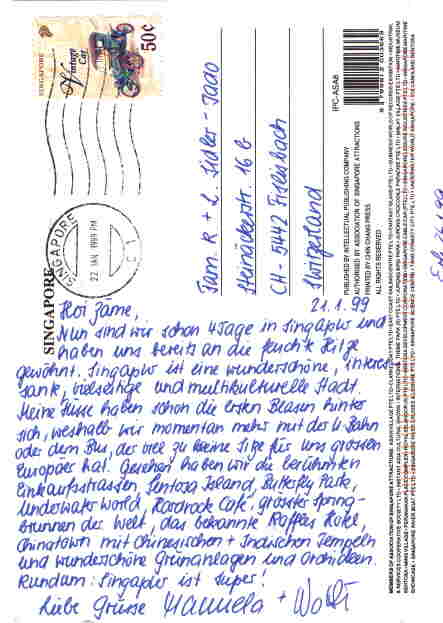 SINGAPORE
Vintage Car
50¢
SINGAPORE
22 JAN 1999 PM
C 1
SINGAPORE
Fam. R + L.
Steinäckerstr. 16 b
CH - 5442 Fislisbach
Switzerland
IPC-ASA8
PUBLISHED BY INTELLECTUAL PUBLISHING COMPANY
AUTHORISED BY ASSOCIATION OF SINGAPORE ATTRACTIONS
PRINTED BY CHIN CHANG PRESS
ALL RIGHTS RESERVED
21.1.99
Hoi Zäme,
Nun sind wir schon 4 Tage in Singapur und
haben uns bereits an die feuchte Hitze
gewöhnt. Singapur ist eine wunderschöne, interes-
sante, vielseitige und multikulturelle Stadt.
Meine Füsse haben schon die ersten Blasen hinter
sich, weshalb wir momentan mehr mit der U-Bahn
oder dem Bus, der viel zu kleine Sitze für uns grossen
Europäer hat. Gesehen haben wir die berühmten
Einkaufsstrassen, Sentosa Island, Butterfly Park,
Underwater World, Hardrock Café, grösster Spring-
brunnen der Welt, das bekannte Raffles Hotel,
Chinatown mit Chinesischen + Indischen Tempeln
und wunderschöne Grünanlagen und Orchideen.
Rundum: Singapur ist super!
Liebe Grüsse Manuela +